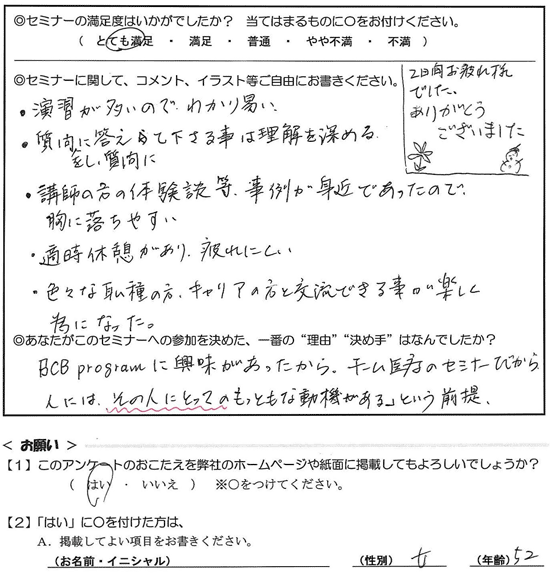 ◎セミナーの満足度はいかがでしたか？ 当てはまるものに○をお付けください。
（ とても満足 ・ 満足 ・ 普通 ・ やや不満 ・ 不満 ）
◎セミナーに関して、コメント、イラスト等ご自由にお書きください。
2日間お疲れ様
でした。
ありがとう
ございました
・演習が多いので、わかり易い
・質問に答えて下さる事は理解を深める
差し質問に
・講師の方の体験談等、事例が身近であったので、
胸に落ちやすい
・適時休憩があり、疲れにくい
・色々な職種の方、キャリアの方と交流できる事が楽しく
為になった。
◎あなたがこのセミナーへの参加を決めた、一番の“理由”“決め手”はなんでしたか？
BCB programに興味があったから。チーム医療のセミナー
人には、その人にとってのもっともな動機がある」という前提、
＜ お願い ＞
【１】このアンケートのおこたえを弊社のホームページや紙面に掲載してもよろしいでしょうか？
（ はい ・ いいえ ） ※○をつけてください。
【２】「はい」に○を付けた方は、
Ａ．掲載してよい項目をお書きください。
（お名前・イニシャル） （性別） 女 （年齢） 52